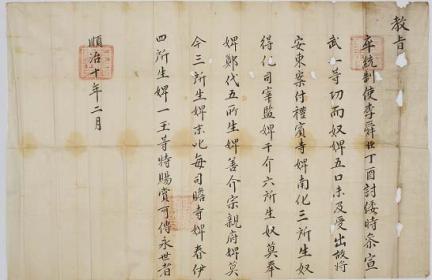 教旨
卒統制使李舜臣丁酉討倭時參宣
武一等功而奴婢五口未及受出故將
安東案付禮賓寺婢南化三所生奴
得化司宰監婢千介六所生奴莫奉
婢鄭代五所生婢善介宗親府婢莫
今三所生婢京化每司贍寺婢春伊
四所生婢一玉等特賜賞可傳永世者
順治十年二月